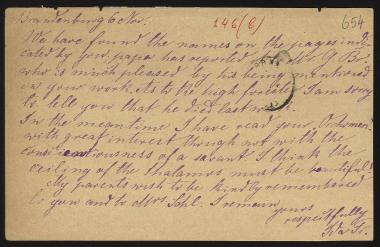 Brandenburg 6 Nov.
146(6)
654
We have found the names on the pages indi-
cated by you, papa has reported to Mr. G. B.
who is much pleased by his being mentioned
in your work. As to the high forester I am sorry
to tell you that he died last
In the meantime I have read your
with great interest though not with the
conscientiousness of a savant. I think the
ceiling of the thalamos must be beautiful.
My parents wish to be kindly remembered
to you and to Mrs. Schl. I remain
yours
respectfully